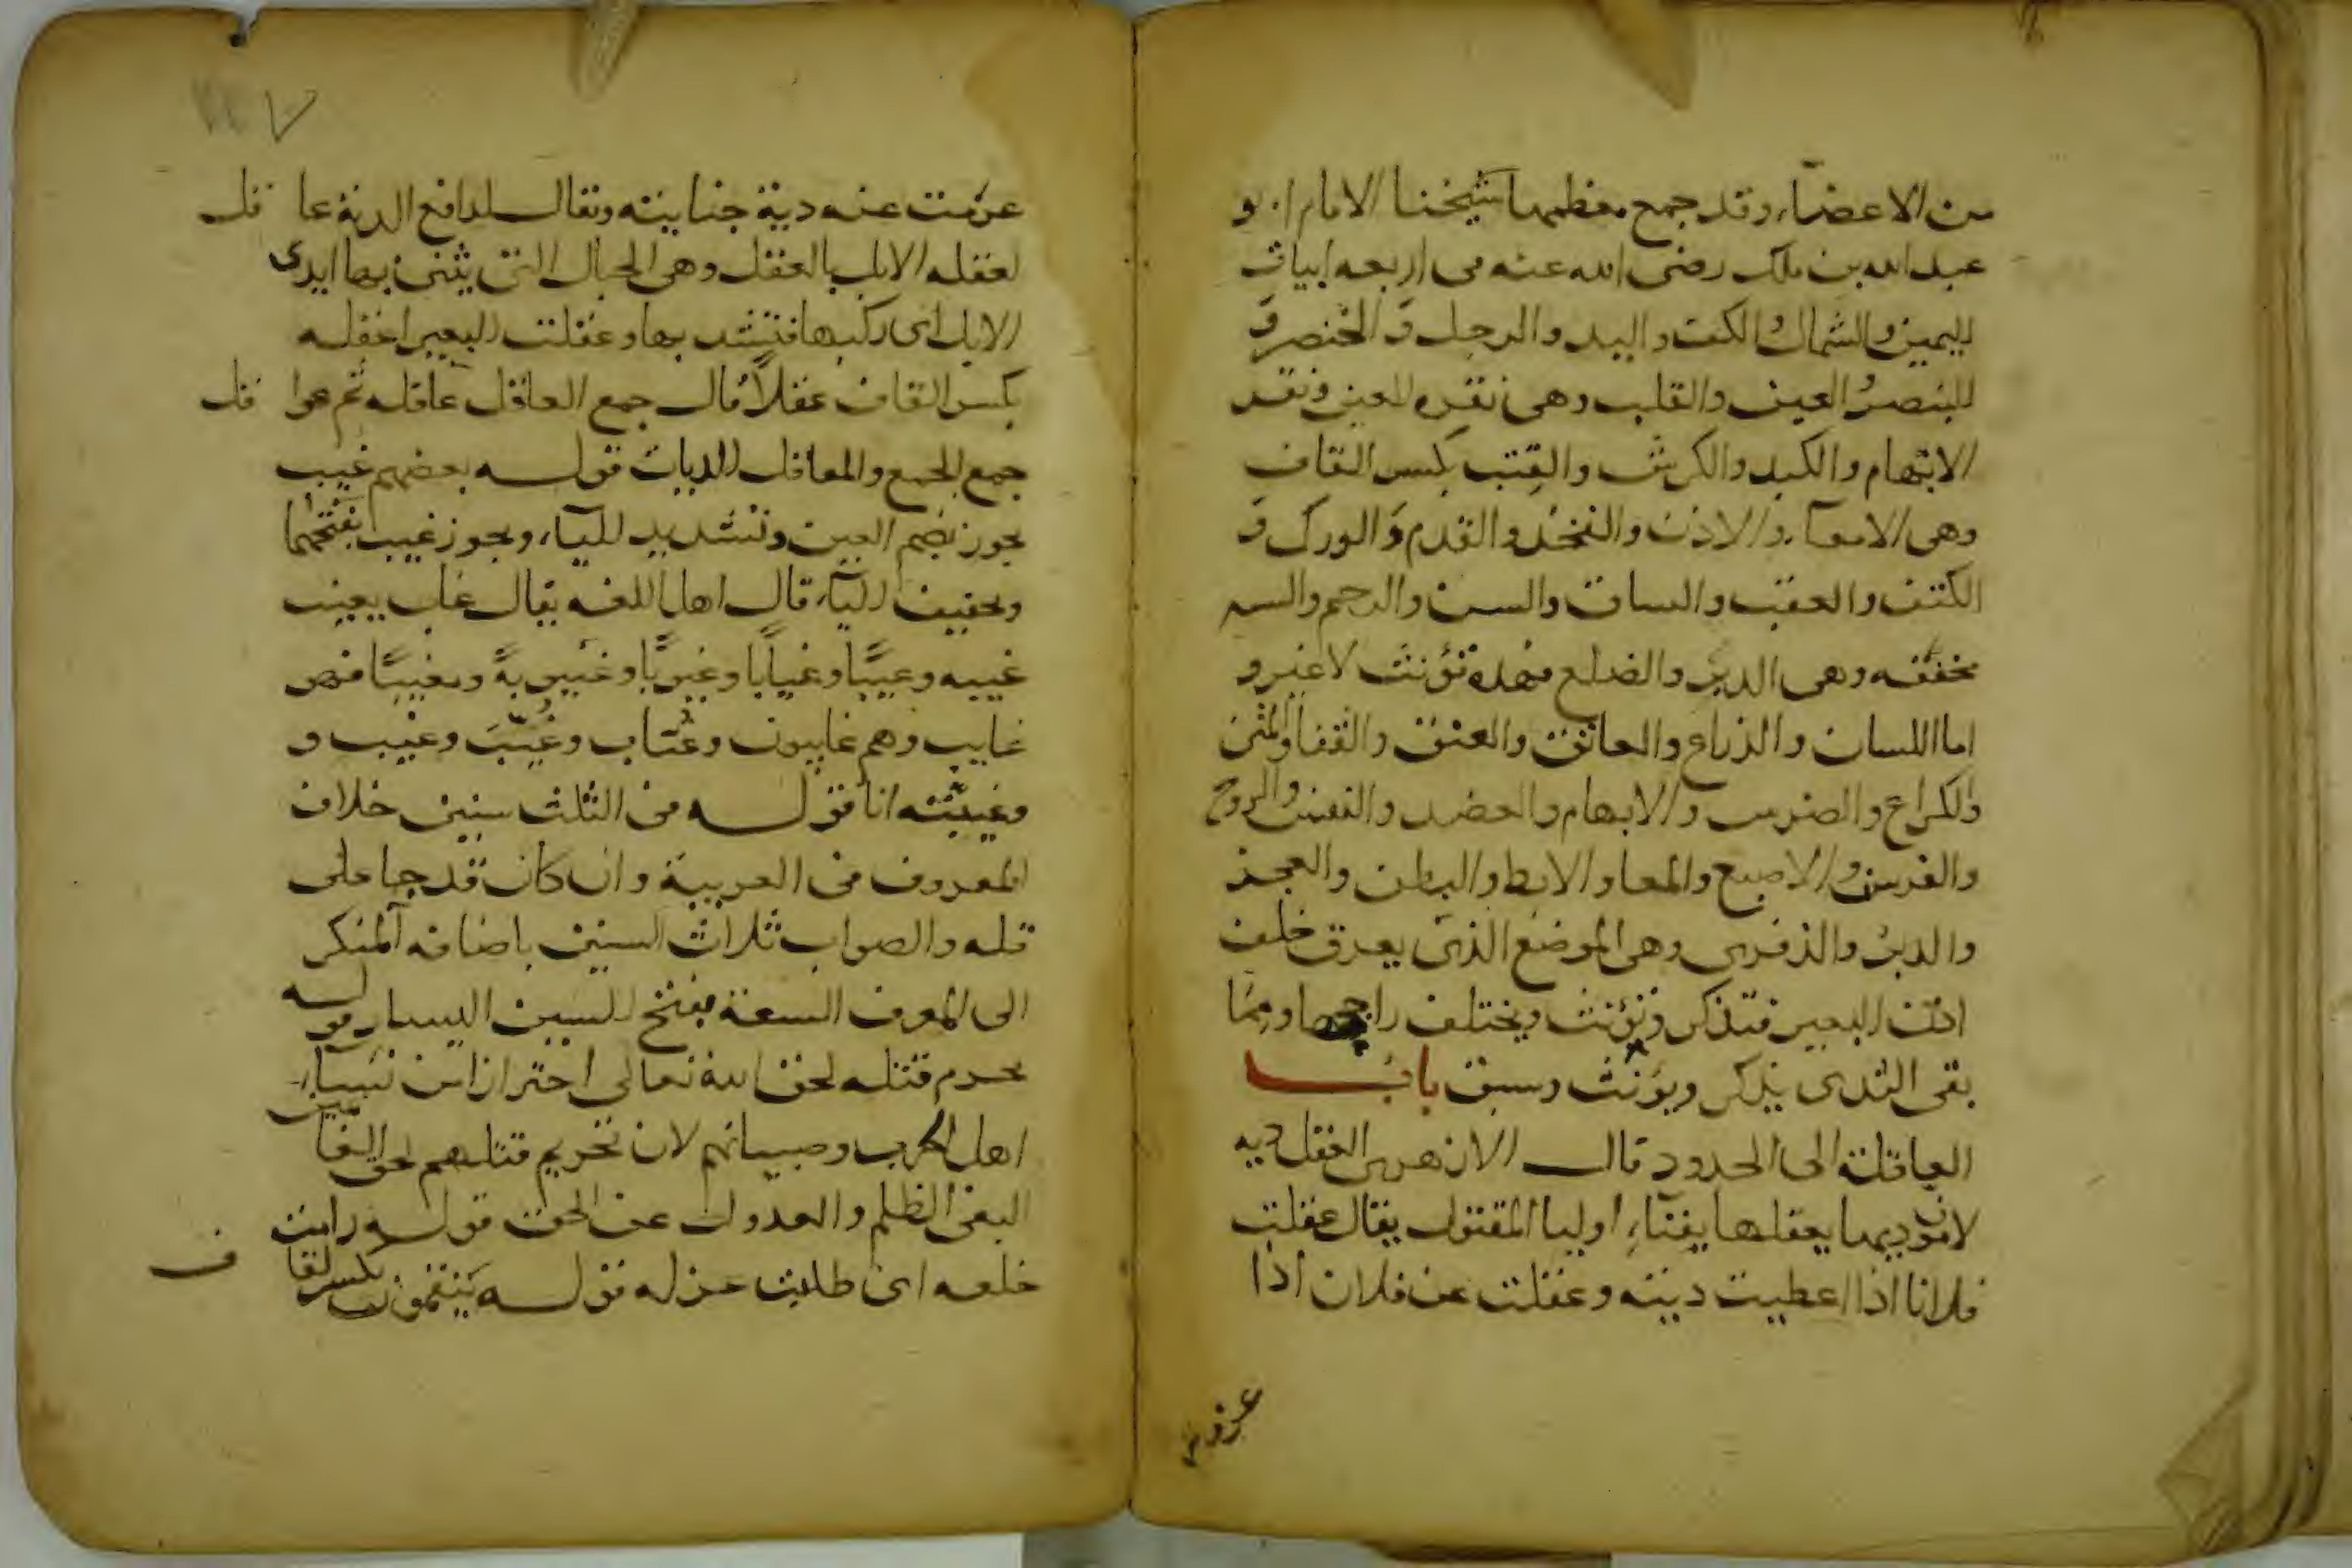 من الاعضاء وقد جمع معظمها شيخنا الامام ابو
عبد الله بن ملك رضى الله عنه فى اربعه ابيات
اليمين والشمال والكف واليد والرجل و الخنصر و
البنصر العين والقلب وهى نقره العين ونقد
الابهام والكبد والكرش والقتب بكسر القاف
وهى الامعآء والاذن والفخذ والقدم و الورك و
الكتف والعقب والساق والسن والرحم والسه
مخففه وهى الدبر والضلع فهذه تؤنث لا غير و
اما اللسان والذراع والعاتق والعنق والقفا والمتن
والكراع والضرس والابهام والعضد والنفس والروح
والفرسن والاصبع والمعا والابط والبطن والعجز
والدبر والذفرى وهى الموضع الذى يعرق خلف
اذن البعير فتذكر وتؤنث ويختلف راجحها ومما
بقى الثدى يذكر ويؤنث وسبق باب
العاقلة الى الحدود قال الازهرى العقل ديه
لان موديها يعقلها بفناء اوليا المقتول يقال عقلت
فلانا اذا اعطيت ديته وعقلت عن فلان اذا
غرمت عنه دية جنايته ويقال لدافع الدية عا قل
لعقله الابل بالعقل وهى الحبال التى يثنى بها ايدى
الابل الى ركبها فتشد بها وعقلت البعير اعقله
بكسر القاف عقلاً قال جمع العاقل عاقله ثم عوا قل
جمع الجمع والمعاقل الديات قوله بعضهم غيب
يجوز بضم الغين وتشديد اليآء ويجوز غيب بفتحهما
وتخفيف اليآء قال اهل اللغه يقال غاب يغيب
غيبه وغيبًا وغيابًا وغيوبًا وغيبوبةً ومغيبًا فهو
غايب وهم غايبون وغياب وغُيَّب وغيب و
وغيبته انا قوله فى الثلث سنين خلاف
المعروف فى العربية وان كان قد جا على
قله والصواب ثلاث السنين باضافه المنكر
الى المعرف السعة بفتح السين اليسار قوله
يحرم قتله لحق الله تعالى احتراز من نسآء
اهل الحرب وصبيانهم لان تحريم قتلهم لحق الغانمين
البغى الظلم والعدول عن الحق قوله رامت
خلعه اى طلبت عزله قوله ينقمون بكسر القا ف